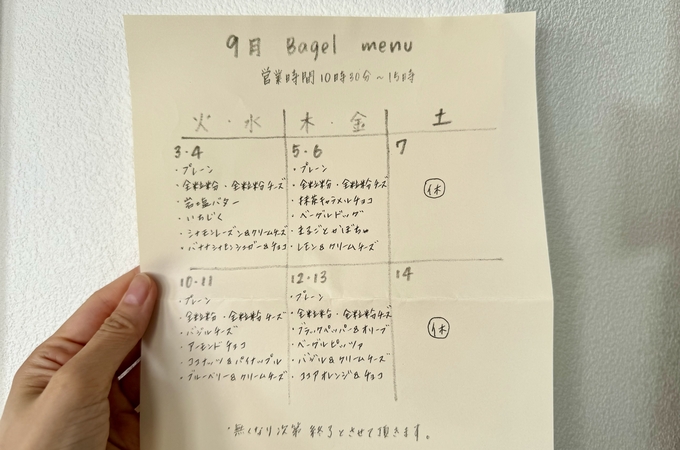 9月 Bagel menu
営業時間10時30分～15時
火・水
木・金
土
3・4
・プレーン
・全粒粉・全粒粉チーズ
・岩塩バター
・いちじく
・シナモンレーズン&クリームチーズ
・バナナシナモンシュガー&チョコ
5・6
・プレーン
・全粒粉・全粒粉チーズ
・抹茶キャラメルチョコ
・ベーグルドッグ
・まるごとかぼちゃ
・レモン&クリームチーズ
7
休
10・11
・プレーン
・全粒粉・全粒粉チーズ
・バジルチーズ
・アーモンドチョコ
・ココナッツ&パイナップル
・ブルーベリー&クリームチーズ
12・13
・プレーン
・全粒粉・全粒粉チーズ
・ブラックペッパー&オリーブ
・ベーグルピッツァ
・バジル&クリームチーズ
・ココアオレンジ&チョコ
14
休
・無くなり次第終了とさせて頂きます。